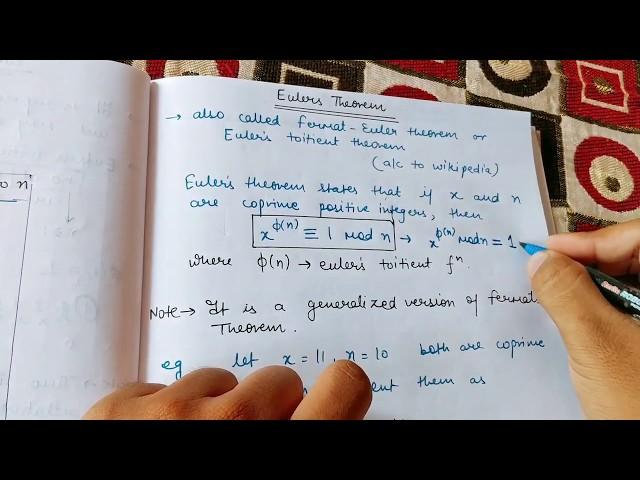 Eulers Theorem
→ also called fermat-Euler theorem or
Euler's toitient theorem
(a/c to wikipedia)
Euler's theorem states that if x and n
are coprime positive integers, then
x^ϕ(n) ≡ 1 mod n → x^ϕ(n) mod n = 1
where ϕ(n) → euler's toitient fⁿ.
Note → It is a generalized version of fermat
Theorem.
eg let x = 11, n = 10 both are coprime
them as
n